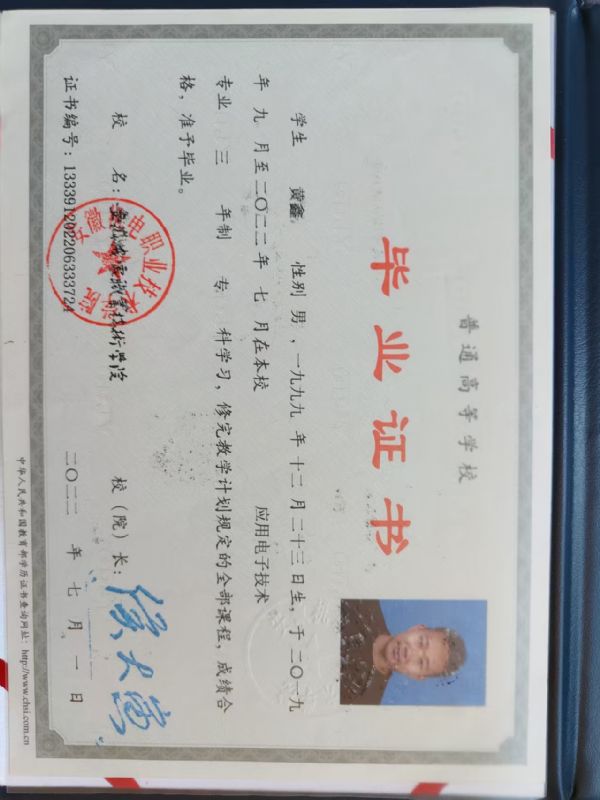 普通高等学校
毕业证书
学生 黄鑫 性别 男 ,一九九九 年 十二月 二十三日生,于 二〇一九
年 九 月至 二〇二二 年 七 月在本校 应用电子技术
专业 三 年制 专 科学习,修完教学计划规定的全部课程,成绩合
格,准予毕业。
校 名: 職業技術學院 校(院)长:
证书编号:133391202206333724 二〇二二 年 七 月 一 日
中华人民共和国教育部学历证书查询网址: http://www.chsi.com.cn